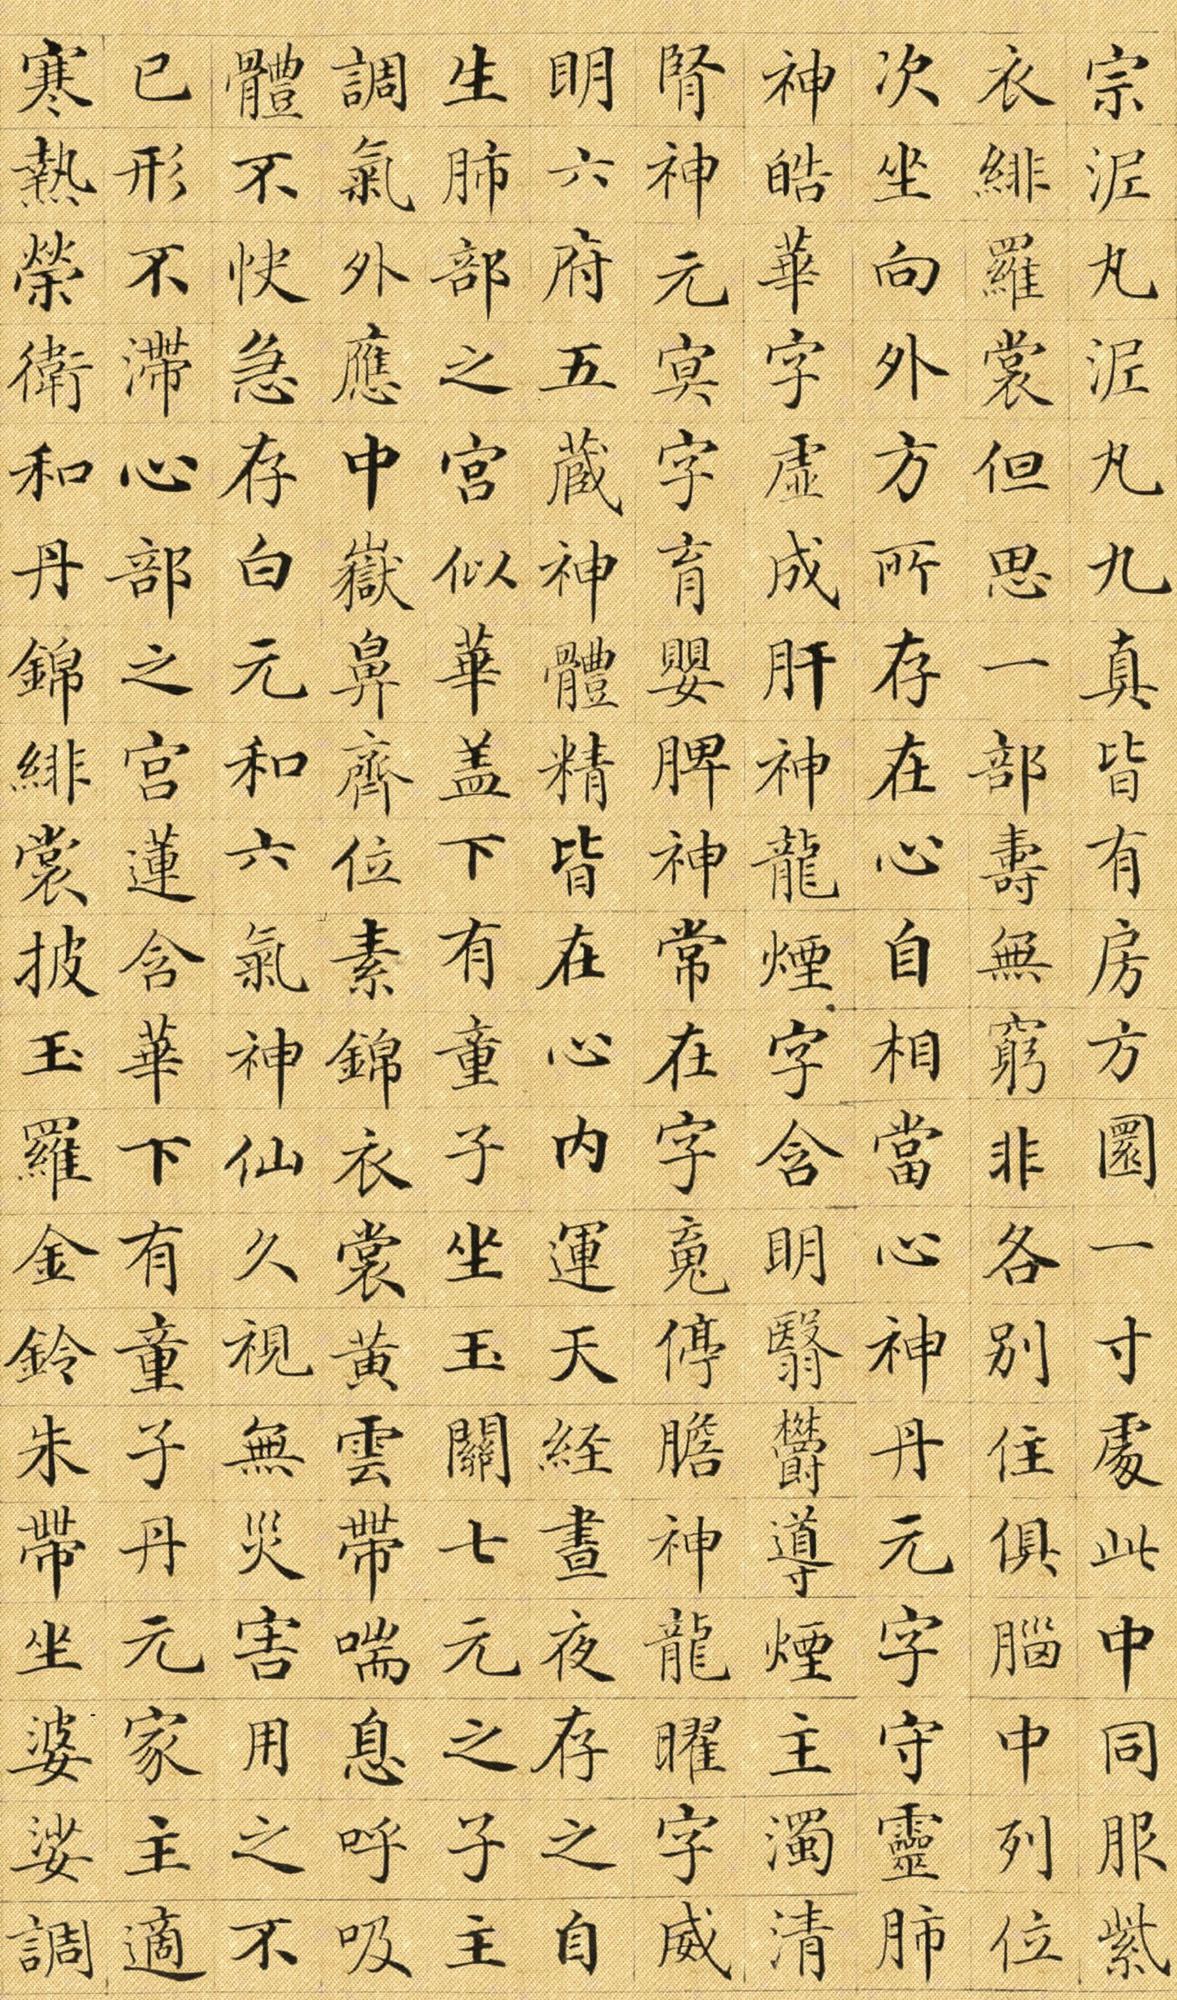 宗泥丸泥丸九真皆有房方圎一寸處此中同服紫
衣緋羅裳但思一部壽無窮非各別住俱腦中列位
次坐向外方所存在心自相當心神丹元字守靈肺
神皓華字虛成肝神龍煙字含明翳欝導煙主濁清
腎神元冥字育嬰脾神常在字䰟停膽神龍曜字威
明六府五蔵神體精皆在心内運天経晝夜存之自
生肺部之宮似華盖下有童子坐玉闕七元之子主
調氣外應中嶽鼻齊位素錦衣裳黄雲帶喘息呼吸
體不快急存白元和六氣神仙久視無災害用之不
已形不滯心部之宮蓮含華下有童子丹元家主適
寒熱榮衛和丹錦緋裳披玉羅金鈴朱帶坐婆娑調